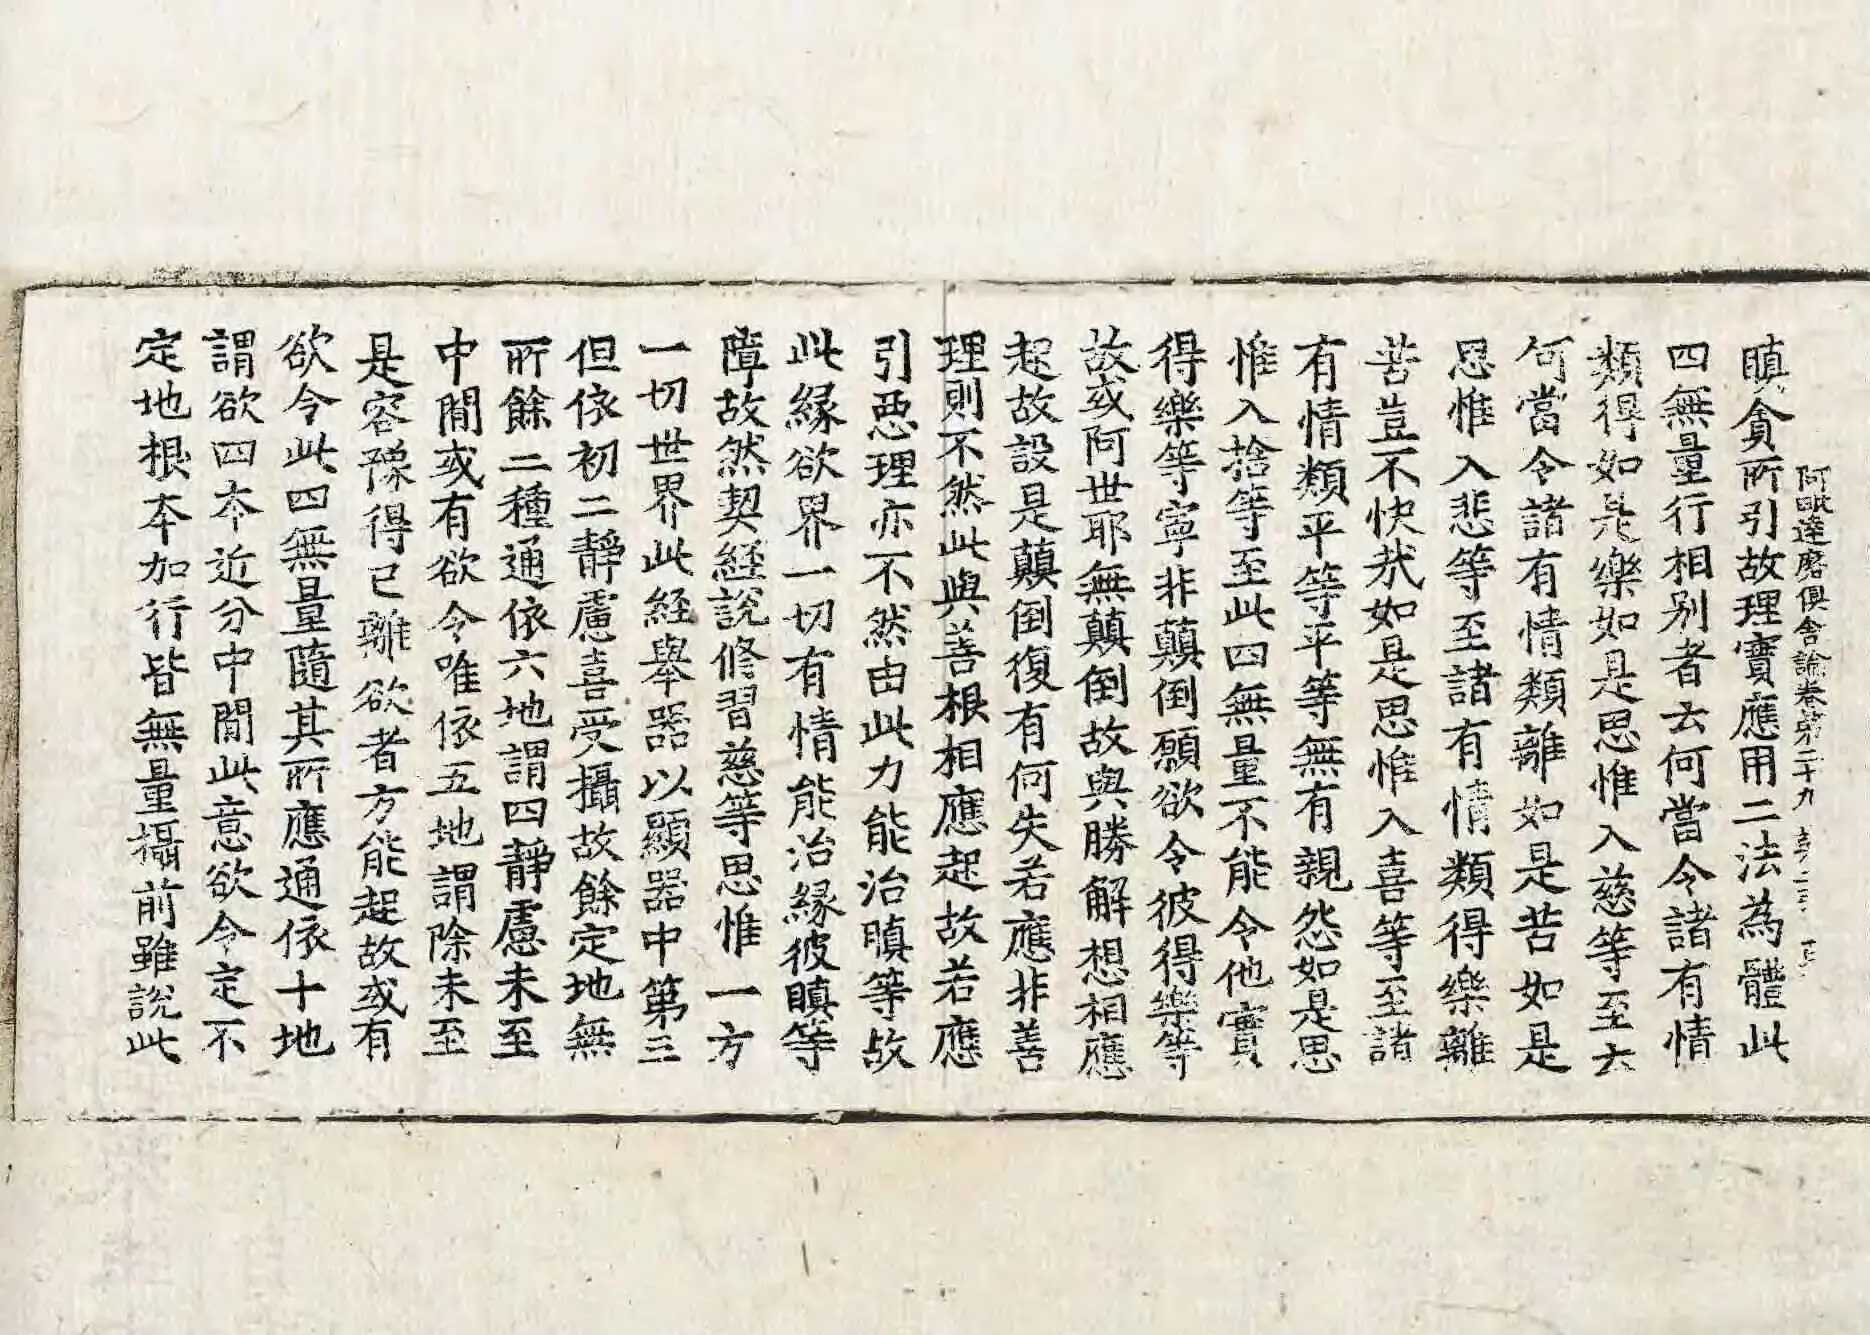 阿毗達磨俱舍論卷第二十九
瞋貪所引故理實應用二法為體此
四無量行相別者云何當令諸有情
類得如是樂如是思惟入慈等至云
何當令諸有情類離如是苦如是
思惟入悲等至諸有情類得樂離
苦豈不快哉如是思惟入喜等至諸
有情類平等平等無有親怨如是思
惟入捨等至此四無量不能令他實
得樂等寧非顛倒願欲令彼得樂等
故或阿世耶無顛倒故與勝解想相應
起故設是顛倒復有何失若應非善
理則不然此與善根相應起故若應
引惡理亦不然由此力能治瞋等故
此緣欲界一切有情能治緣彼瞋等
障故然契經說修習慈等思惟一方
一切世界此經舉器以顯器中第三
但依初二靜慮喜受攝故餘定地無
所餘二種通依六地謂四靜慮未至
中間或有欲令唯依五地謂除未至
是容豫得已離欲者方能起故或有
欲令此四無量隨其所應通依十地
謂欲四本近分中間此意欲令定不
定地根本加行皆無量攝前雖說此